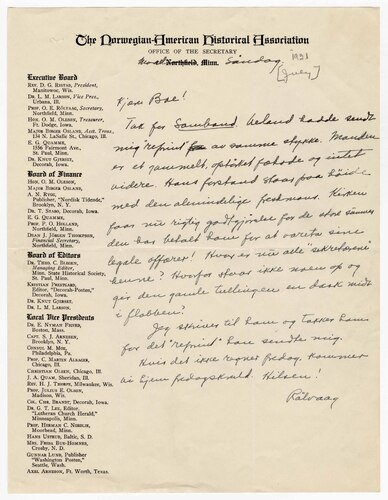 The Norwegian-American Historical Association
OFFICE OF THE SECRETARY
Northfield, Minn. Søndag 1928
[June]
Executive Board
REV. D. G. RISTAD, President,
Manitowoc, Wis.
DR. L. M. LARSON, Vice Pres.,
Urbana, Ill.
PROF. O. E. RÖLVAAG, Secretary,
Northfield, Minn.
HON. O. M. OLESON, Treasurer,
Ft. Dodge, Iowa.
MAJOR BIRGER OSLAND, Asst. Treas.,
134 N. LaSalle St., Chicago, Ill.
E. G. QUAMME,
1596 Fairmont Ave.,
St. Paul, Minn.
DR. KNUT GJERSET,
Decorah, Iowa.
Board of Finance
HON. O. M. OLESON,
MAJOR BIRGER OSLAND,
A. N. RYGG,
Publisher, "Nordisk Tidende,"
Brooklyn, N. Y.
DR. T. STABO, Decorah, Iowa.
E. G. QUAMME,
PROF. P. O. HOLLAND,
Northfield, Minn.
DEAN J. JÖRGEN THOMPSON,
Financial Secretary,
Northfield, Minn.
Board of Editors
DR. THEO. C. BLEGEN,
Managing Editor,
Minn. State Historical Society,
St. Paul, Minn.
KRISTIAN PRESTGARD,
Editor, "Decorah-Posten,"
Decorah, Iowa.
DR. KNUT GJERSET,
DR. L. M. LARSON.
Local Vice Presidents
DR. E. NYMAN FIGVED,
Boston, Mass.
CAPT. S. J. ARNESEN,
Brooklyn, N. Y.
CONSUL M. MOE,
Philadelphia, Pa.
PROF. C. MARTIN ALSAGER,
Chicago, Ill.
CHRISTIAN OLSEN, Chicago, Ill.
J. A. QUAM, Sheridan, Ill.
REV. H. J. THORPE, Milwaukee, Wis.
PROF. JULIUS E. OLSON,
Madison, Wis.
COL. CHR. BRANDT, Decorah, Iowa.
DR. G. T. LEE, Editor,
"Lutheran Church Herald,"
Minneapolis, Minn.
PROF. HERMAN C. NORDLIE,
Moorhead, Minn.
HANS USTRUD, Baltic, S. D.
MRS. FRIDA BUE-HOMNES,
Crosby, N. D.
GUNNAR LUND, Publisher
"Washington Posten,"
Seattle, Wash.
AXEL ARNESON, Ft. Worth, Texas.
Kjære Boe!
Tak for Samband. Veland hadde sendt
mig reprint av samme stykke. Manden
er et gammelt, opblæst fæhode og intet
videre. Hans forstand staar paa høide
med den almindelige freshmans. Kirken
faar nu rigtig godtgjørelse for de store summer
den har betalt ham for at vareta sine
legale affærer! Hvor er nu alle
denne? Hvorfor staar ikke noen op og
gir den gamle tullingen en dask midt
i flabben?
Jeg skriver til ham og takker ham
for det "reprint" han sendte mig.
Hvis det ikke regner fredag, kommer
vi hjem fredagskveld. Hilsen!
Rölvaag